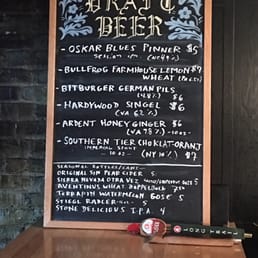 DRAFT
BEER
- OSKAR BLUES PINNER $5
SESSION IPA - (NC 4.9%)
- BULLFROG FARMHOUSE LEMON $7
WHEAT
- BITBURGER GERMAN PILS
(4.8%) $6
- HARDYWOOD SINGEL $6
(VA 6.2%)
- ARDENT HONEY GINGER $6
(VA 7.8%) - 10oz -
- SOUTHERN TIER CHOKLAT-ORANJ
IMPERIAL STOUT
- 10oz - (NY 10%) $7
SEASONAL BOTTLES/CANS
ORIGINAL SIN PEAR CIDER 5
SIERRA NEVADA OTRA VEZ GOSE 5
AVENTINUS WHEAT DOPPELBOCK 7.50
TERRAPIN WATERMELON GOSE 5
STIEGL RADLER 5
STONE DELICIOUS I.P.A. 4